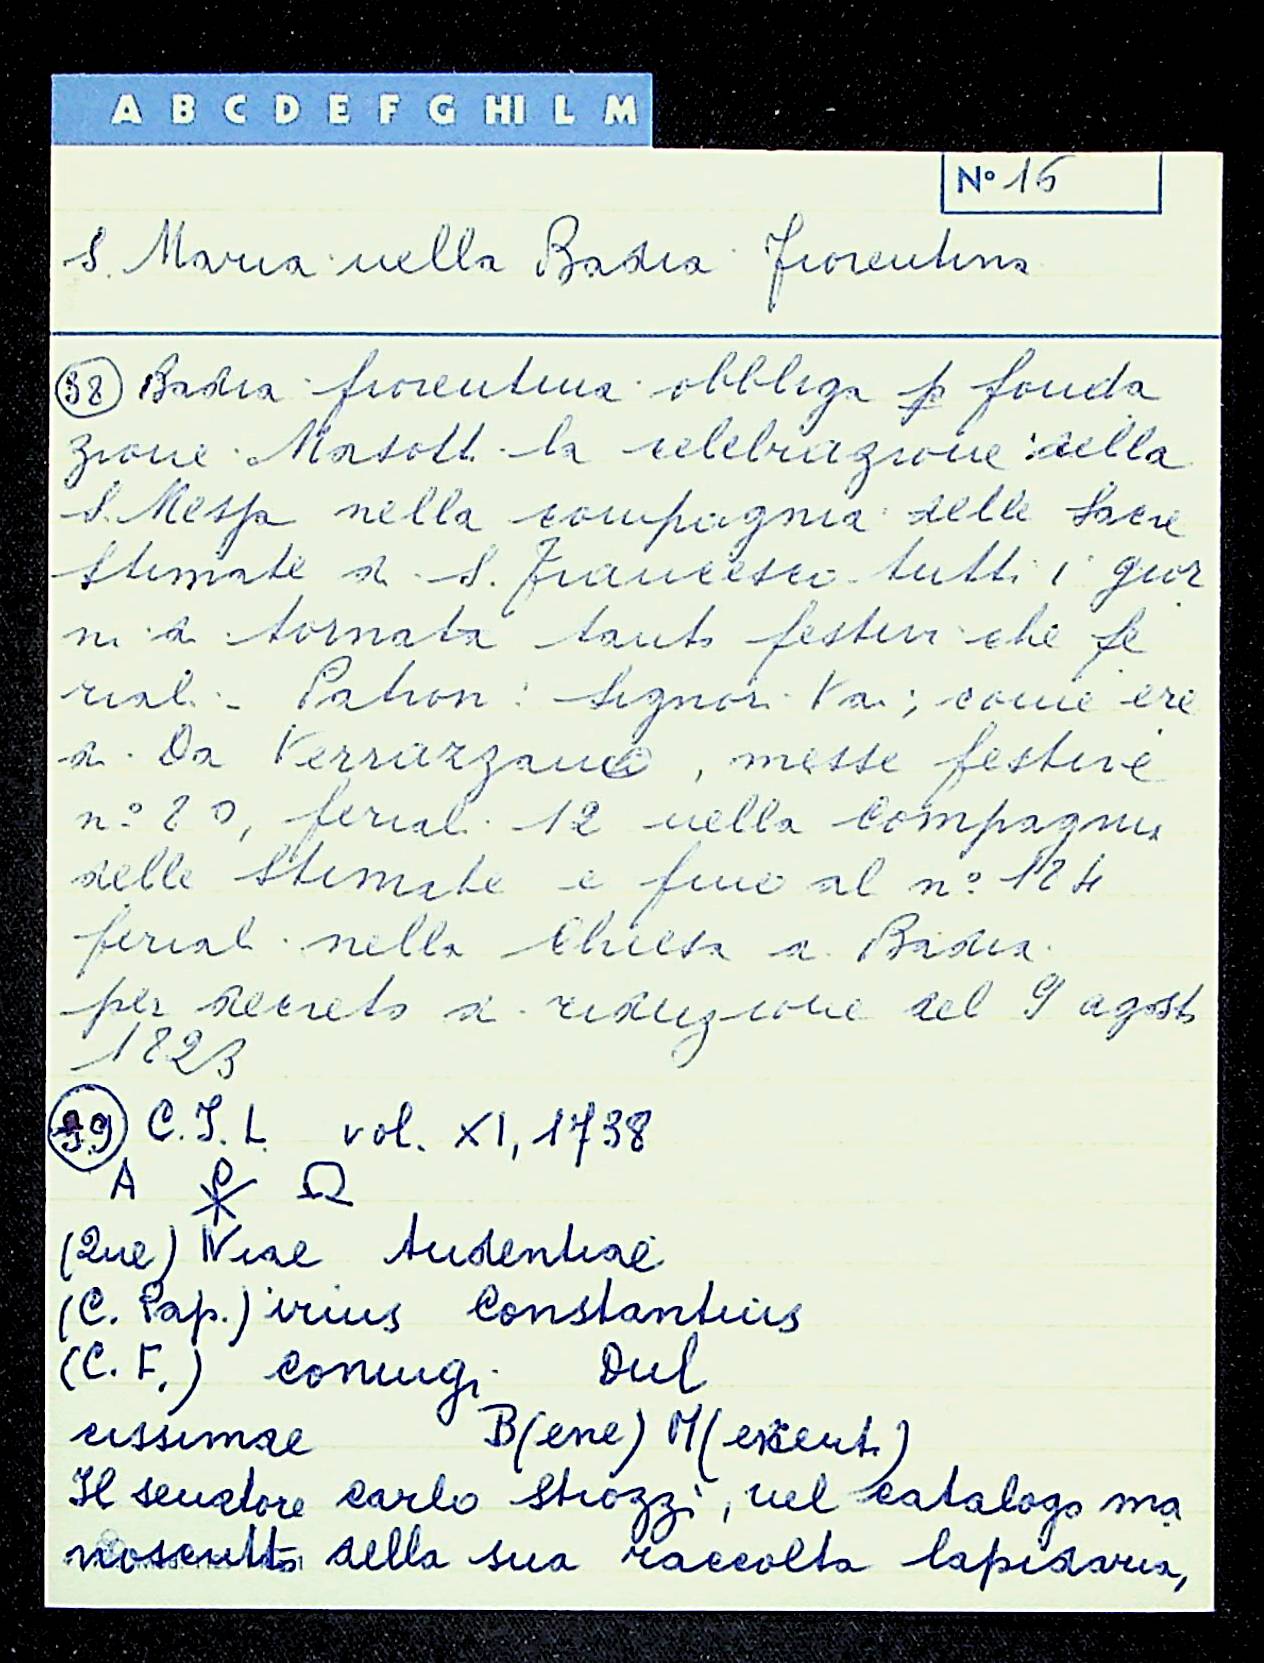 A B C D E F G HI L M
N° 16
S. Maria nella Badia Fiorentina
38 Badia fiorentina obbliga p fonda
zione Masotti la celebrazione della
S. Messa nella compagnia delle Sacre
Stimate di S. Francesco tutti i gior
ni di tornata tanto festivi che fe
riali - Patroni: Signori Vai; come ere
di Da Verrazzano, messe festive
n° 80, feriali 12 nella Compagnia
delle Stimate e fino al n° 124
feriali nella Chiesa di Badia
per decreto di riduzione del 9 agosto
1823
39 C.I.L. vol. XI, 1738
A ☧ Ω
(Que) Niae Audentiae
(C. Pap.) irius Constantius
(C. F.) coniugi Dul
cissimae B(ene) M(erenti)
Il senatore Carlo Strozzi, nel catalogo ma
noscritto della sua raccolta lapidaria,